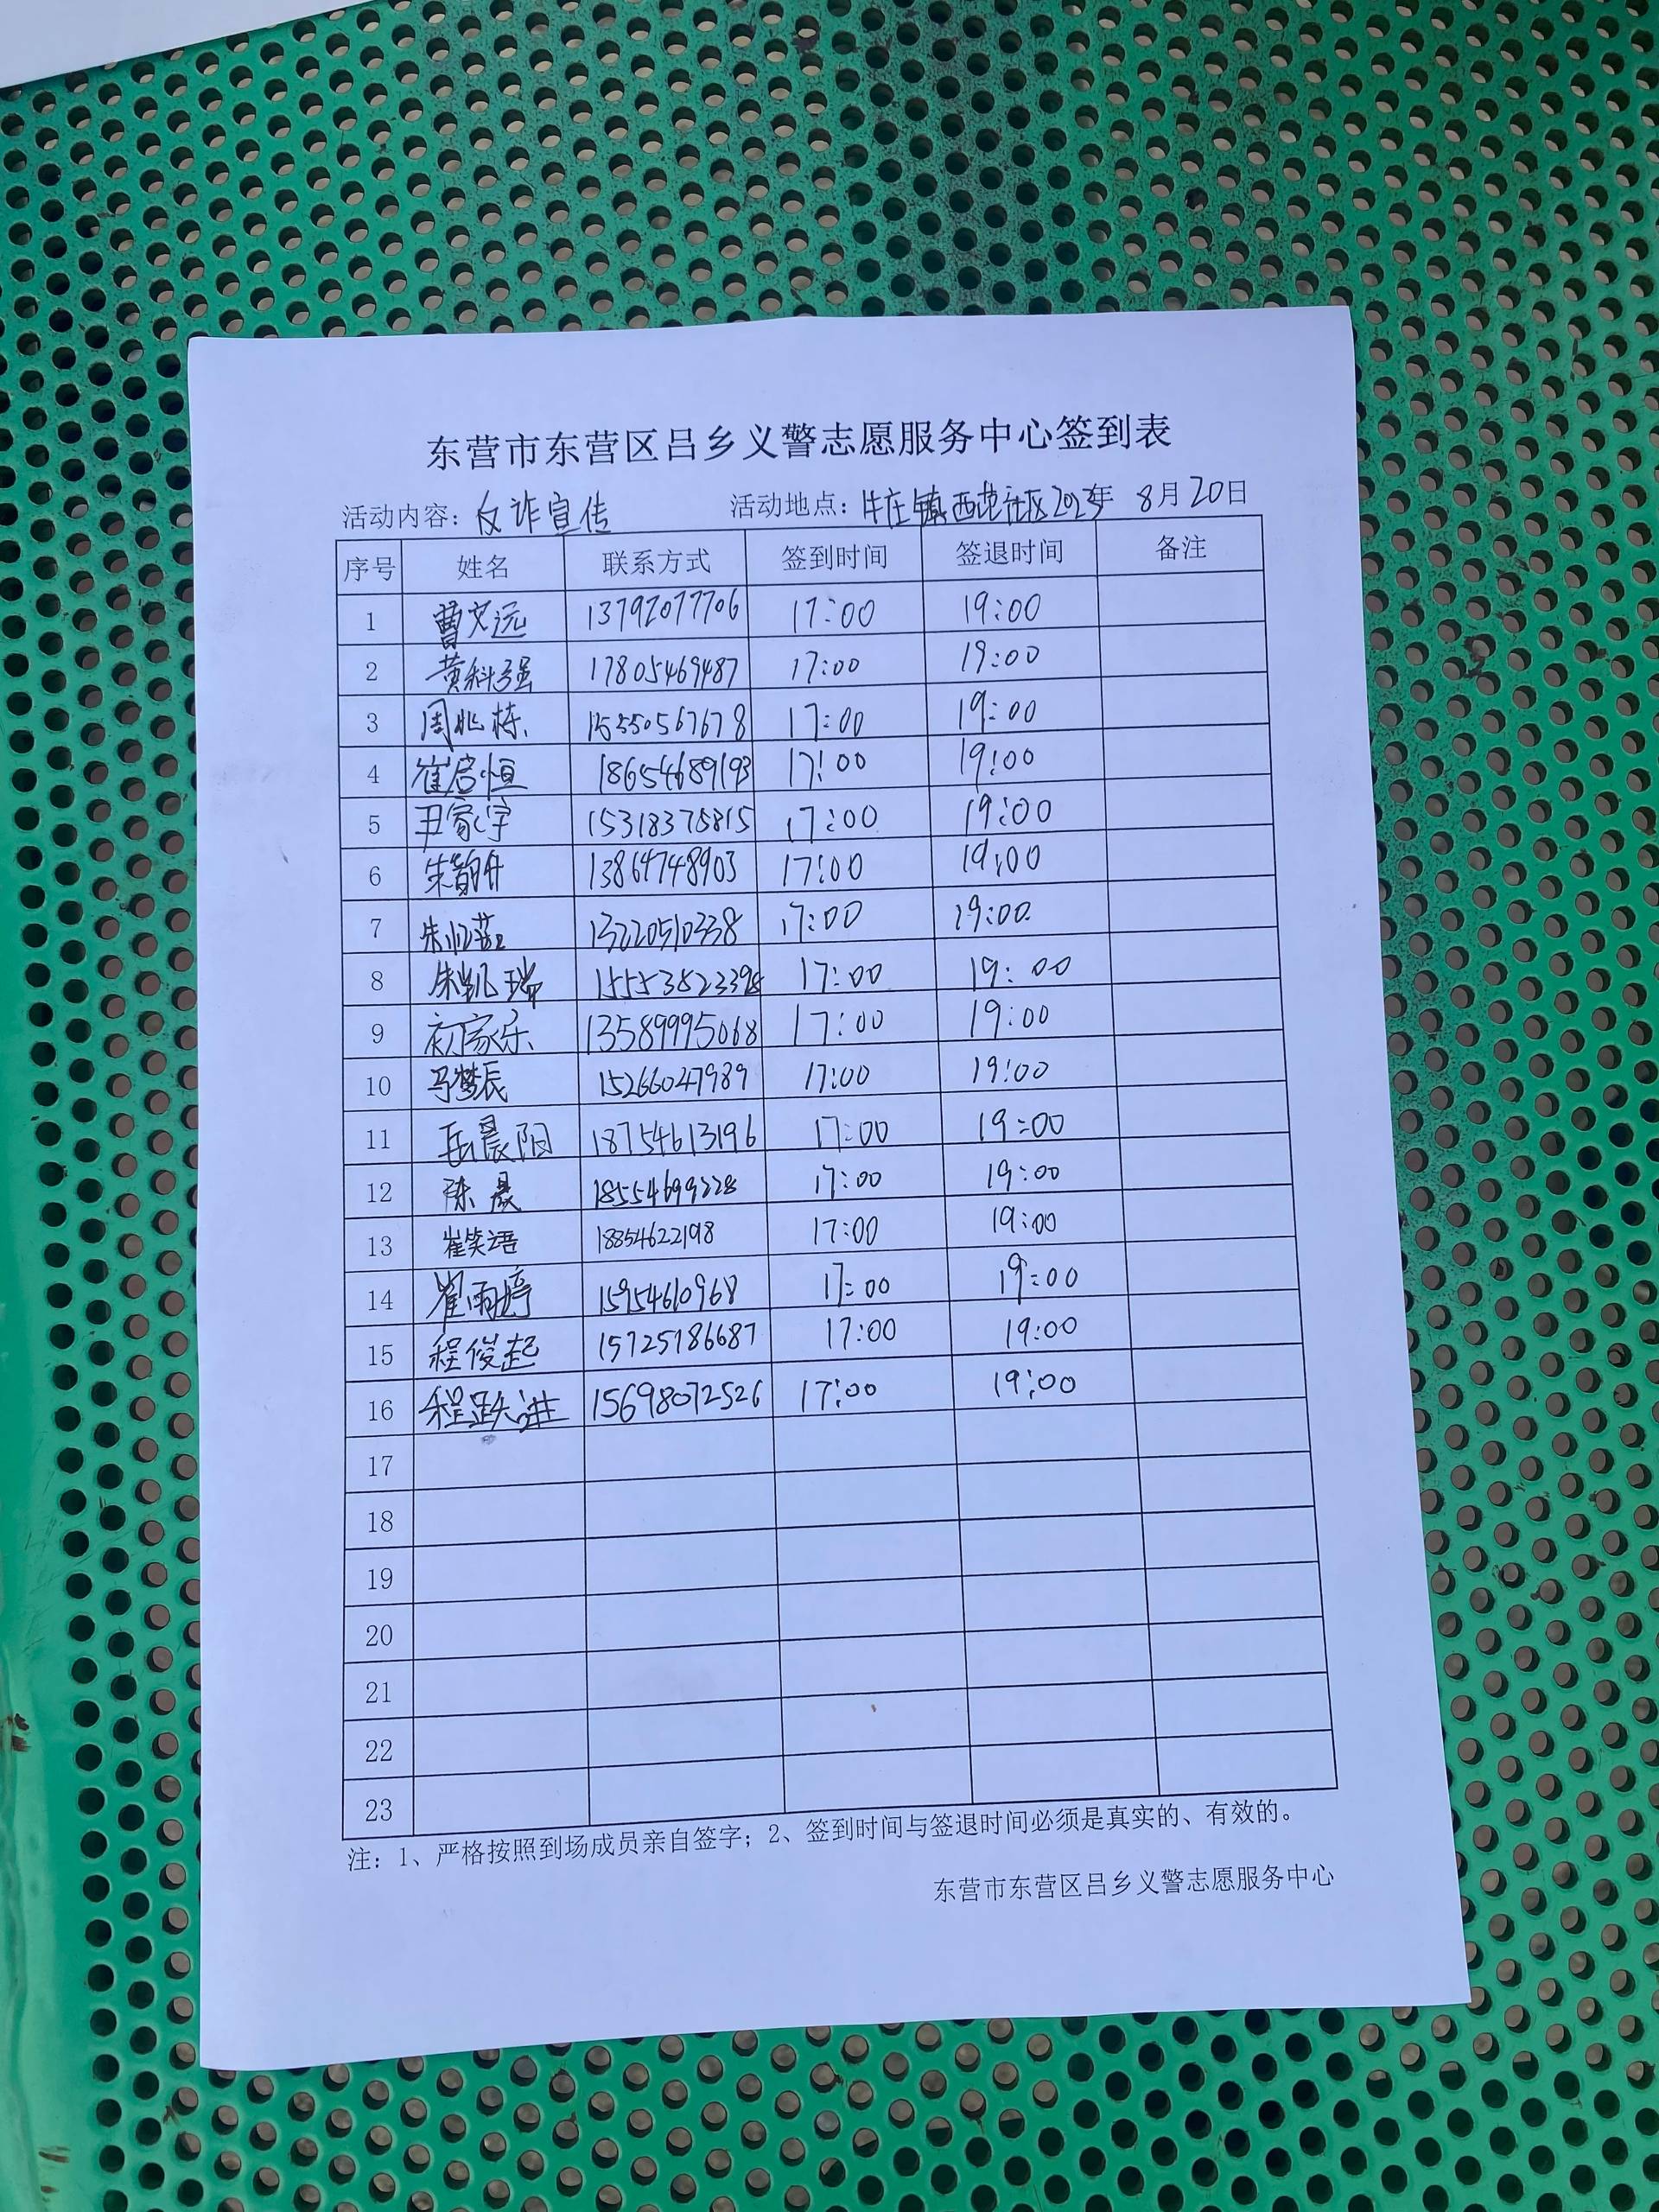 东营市东营区吕乡义警志愿服务中心签到表
活动内容：反诈宣传 活动地点：牛庄镇西范社区2023年 8月20日
序号 姓名 联系方式 签到时间 签退时间 备注
1 曹文远 13792077706 17:00 19:00
2 黄科强 17805469487 17:00 19:00
3 周兆栋 15550567678 17:00 19:00
4 崔启恒 18654689193 17:00 19:00
5 尹家宇 15318375815 17:00 19:00
6 朱韵舟 13864748903 17:00 19:00
7 17:00 19:00
8 朱凯瑞 15553823398 17:00 19:00
9 初家乐 13589995068 17:00 19:00
10 马梦辰 15266047989 17:00 19:00
11 岳晨阳 18754613196 17:00 19:00
12 陈晨 18554699228 17:00 19:00
13 崔笑语 18854622198 17:00 19:00
14 崔雨婷 15954610968 17:00 19:00
15 程俊起 15725186687 17:00 19:00
16 程跃进 15698072526 17:00 19:00
17
18
19
20
21
22
23
注：1、严格按照到场成员亲自签字；2、签到时间与签退时间必须是真实的、有效的。
东营市东营区吕乡义警志愿服务中心